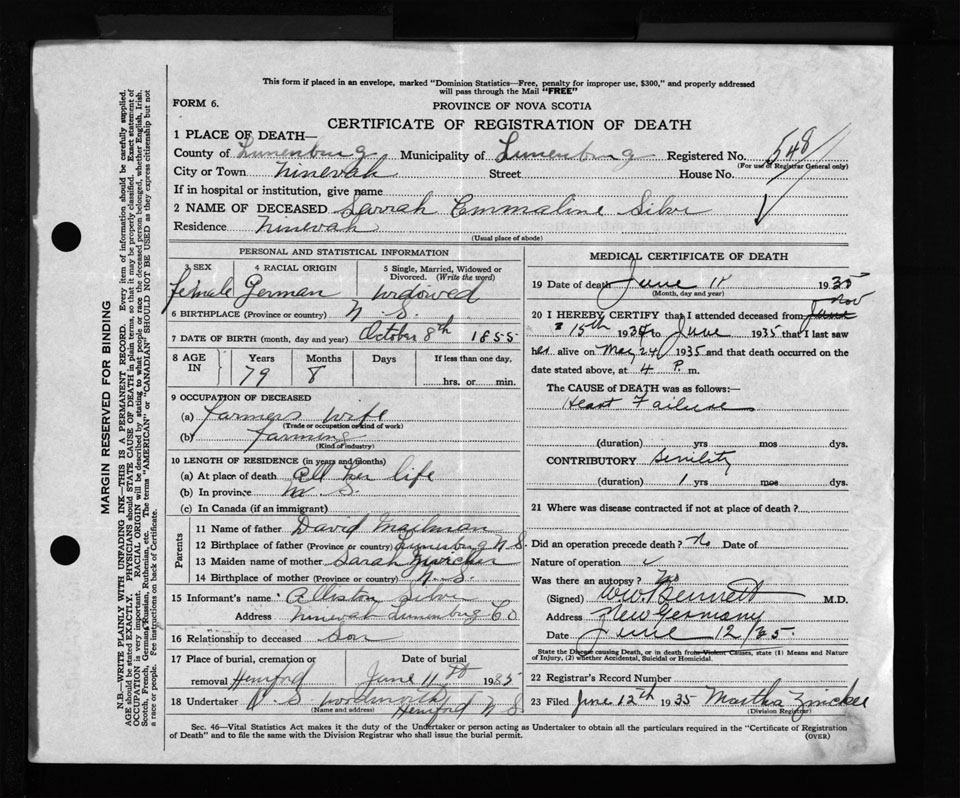 This form if placed in an envelope, marked "Dominion Statistics—Free, penalty for improper use, $300," and properly addressed
will pass through the Mail "FREE"
FORM 6.
PROVINCE OF NOVA SCOTIA
CERTIFICATE OF REGISTRATION OF DEATH
1 PLACE OF DEATH—
County of Lunenburg Municipality of Lunenburg Registered No. 548
(For use of Registrar General only)
City or Town Ninevah Street House No.
If in hospital or institution, give name
2 NAME OF DECEASED Sarrah Emmaline Silve
Residence Ninevah
(Usual place of abode)
PERSONAL AND STATISTICAL INFORMATION
3 SEX 4 RACIAL ORIGIN 5 Single, Married, Widowed or Divorced. (Write the word)
female German widowed
6 BIRTHPLACE (Province or country) N. S.
7 DATE OF BIRTH (month, day and year) October 8th 1855
8 AGE IN Years Months Days If less than one day,
79 8 hrs. or min.
9 OCCUPATION OF DECEASED
(a) farmers wife
(Trade or occupation or kind of work)
(b) farming
(Kind of industry)
10 LENGTH OF RESIDENCE (in years and months)
(a) At place of death all her life
(b) In province N. S.
(c) In Canada (if an immigrant)
Parents
11 Name of father David Mailman
12 Birthplace of father (Province or country) Lunenburg N S.
13 Maiden name of mother Sarah
14 Birthplace of mother (Province or country) N. S.
15 Informant's name Allister Silver
Address Ninevah Lunenburg CO
16 Relationship to deceased Son
17 Place of burial, cremation or Date of burial
removal Hemford June 11th 1935
18 Undertaker N. S
(Name and address) Hemford N S
MEDICAL CERTIFICATE OF DEATH
19 Date of death June 11 1935
(Month, day and year)
20 I HEREBY CERTIFY that I attended deceased from Nov
15th 1934 to June 1935 that I last saw
her alive on May 24 1935 and that death occurred on the
date stated above, at 4 P. m.
The CAUSE of DEATH was as follows:—
Heart Failure
(duration) yrs mos dys.
CONTRIBUTORY Senility
(duration) 1 yrs mos dys.
21 Where was disease contracted if not at place of death?
Did an operation precede death? No Date of
Nature of operation
Was there an autopsy? No
(Signed) W.W. Bennett M.D.
Address New Germany
Date June 12/35.
State the Disease causing Death, or in death from Violent Causes, state (1) Means and Nature
of Injury, (2) whether Accidental, Suicidal or Homicidal.
22 Registrar's Record Number
23 Filed June 12th 1935 Martha Zinckle
(Division Registrar)
Sec. 46—Vital Statistics Act makes it the duty of the Undertaker or person acting as Undertaker to obtain all the particulars required in the "Certificate of Registration
of Death" and to file the same with the Division Registrar who shall issue the burial permit.
(OVER)
MARGIN RESERVED FOR BINDING
N.B.—WRITE PLAINLY WITH UNFADING INK—THIS IS A PERMANENT RECORD. Every item of information should be carefully supplied.
AGE should be stated EXACTLY. PHYSICIANS should STATE CAUSE OF DEATH in plain terms, so that it may be properly classified. Exact statement of
OCCUPATION is very important. RACIAL ORIGIN will be described by stating to what people or race the deceased person belonged, whether English, Irish,
Scotch, French, German, Russian, Ruthenian, etc. The terms "AMERICAN" or "CANADIAN" SHOULD NOT BE USED as they express citizenship but not
a race or people. See instructions on back of Certificate.